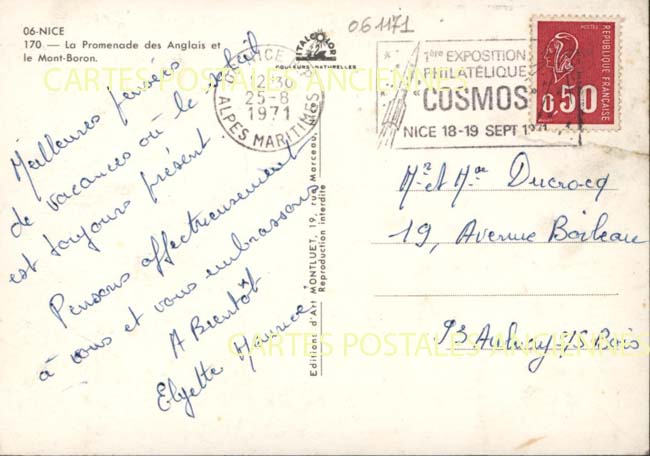 06-NICE
170 — La Promenade des Anglais et
le Mont-Boron.
ITALCOLOR
COULEURS NATURELLES
061171
NICE
12H30
25-8
1971
ALPES MARITIMES
1ère EXPOSITION
PHILATÉLIQUE
"COSMOS"
NICE 18-19 SEPT 1971
POSTES
REPUBLIQUE FRANÇAISE
0,50
CARTES POSTALES ANCIENNES
Meilleures pensées
de vacances où le soleil
est toujours présent.
Pensons affectueusement
à vous et vous embrassons
A Bientôt
Elyette Maurice
Editions d'Art MONTLUET, 19, rue Marceau,
Reproduction interdite
Mr et Mme Ducrocq
19, Avenue Boileau
93 Aulnay S/S Bois
CARTES POSTALES ANCIENNES